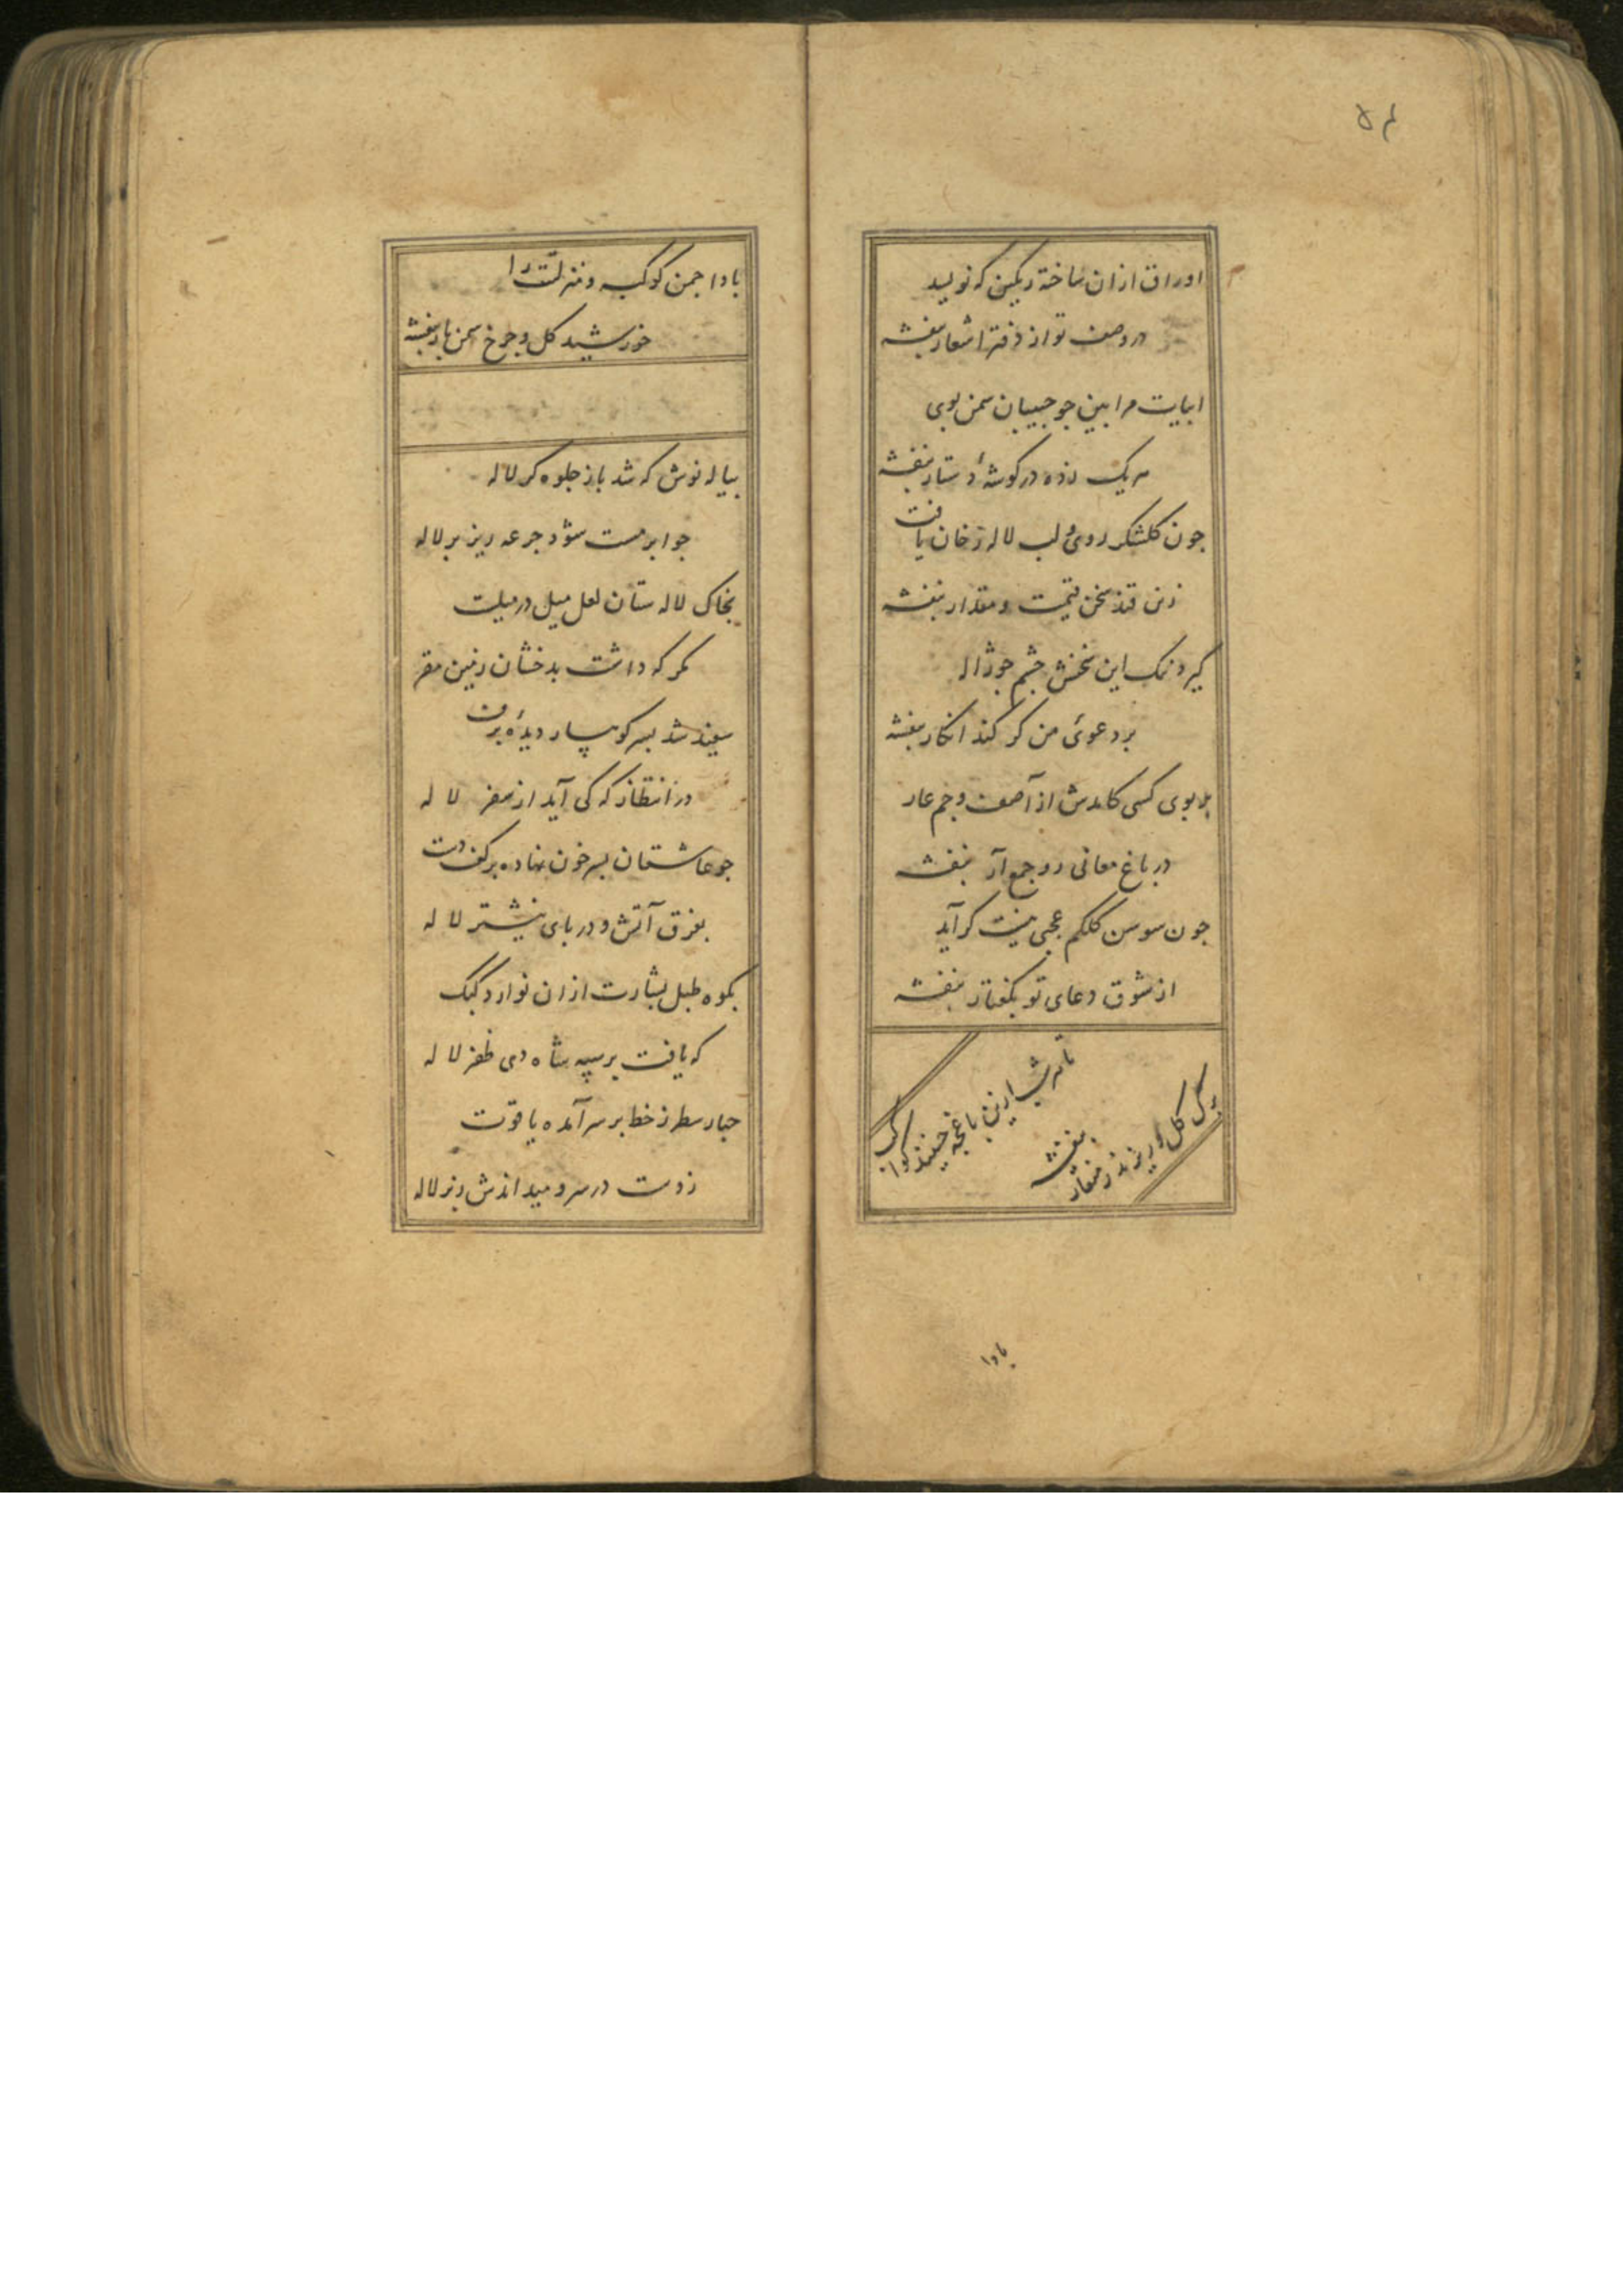 ۵۴
اوراق ازان ساخته رنکین که نویسد
در وصف تو از دفتر اشعار بنفشه
ابیات مرا بین جو حبیبان سمن بوی
هر یک زده در کوشهٔ دستار بنفشه
جون کلشکر روی و لب لاله رخان یافت
زین قند سخن قیمت و مقدار بنفشه
کیرد نمک این سخنش جشم جو ژاله
بر دعوئ من کر کند انکار بنفشه
بر بوی کسی کامدش از آصف و جم عار
در باغ معانی رود جمع آر بنفشه
جون سوسن کلکم عجبی نیست کر آید
از شوق دعای تو بکفتار بنفشه
تا هر شب ازین باغجه جینند کواکب
برک کل و ریزند ز منقار
بنفشه
بادا
بادا جمن کوکبه و منزلتت را
خورشید کل و جرخ سمن بار بنفشه
پیاله نوش که شد باز جلوه کر لاله
جو ابر مست شود جرعه ریز بر لاله
بخاک لاله ستان لعل میل در میلت
مکر که داشت بدخشان زمین مقر
سفید شد بسر کوهسار دیدهٔ برف
در انتظار که کی آید از سفر لاله
جو عاشقان بسر خون نهاده بر کف دست
بفرق آتش و در پای نیشتر لاله
بکوه طبل بشارت ازان نوازد کبک
که یافت بر سپه شاه دی ظفر لاله
جبار سطر ز خط بر سر آمده یاقوت
ز دست در سر و میدانذش زبر لاله